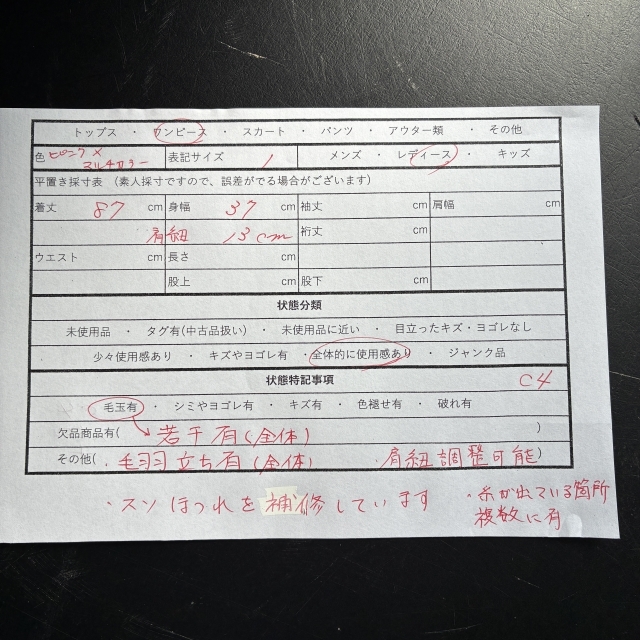 トップス ・ ワンピース ・ スカート ・ パンツ ・ アウター類 ・ その他
色 ピンク× マルチカラー 表記サイズ 1 メンズ ・ レディース ・ キッズ
平置き採寸表 (素人採寸ですので、誤差がでる場合がございます)
着丈 87 cm 身幅 37 cm 袖丈 cm 肩幅 cm
肩紐 13cm 裄丈 cm
ウエスト cm 長さ cm
股上 cm 股下 cm
状態分類
未使用品 ・ タグ有(中古品扱い) ・ 未使用品に近い ・ 目立ったキズ・ヨゴレなし
少々使用感あり ・ キズやヨゴレ有 ・ 全体的に使用感あり ・ ジャンク品
状態特記事項 C4
毛玉有 ・ シミやヨゴレ有 ・ キズ有 ・ 色褪せ有 ・ 破れ有
欠品商品有( 若干有(全体) )
その他( ・毛羽立ち有(全体) ・肩紐調整可能)
・スソほつれを補修しています ・糸が出ている箇所
複数に有